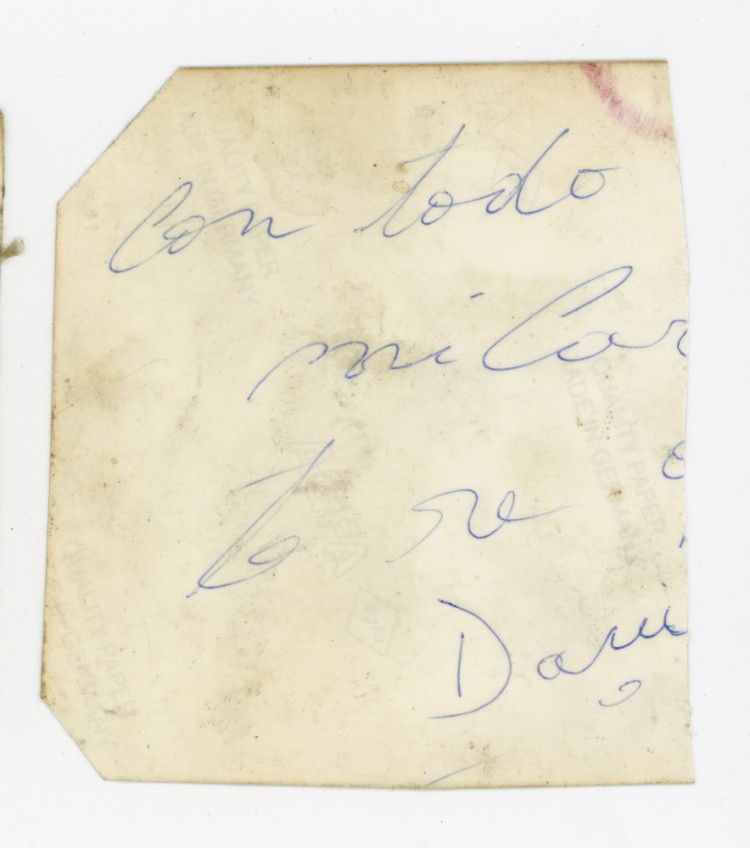 con todo
mi Car
te se
Dani
QUALITY PAPER
MADE IN GERMANY
QUALITY PAPER
MADE IN GERMANY
QUALITY PAPER
GERMANY
AGFA